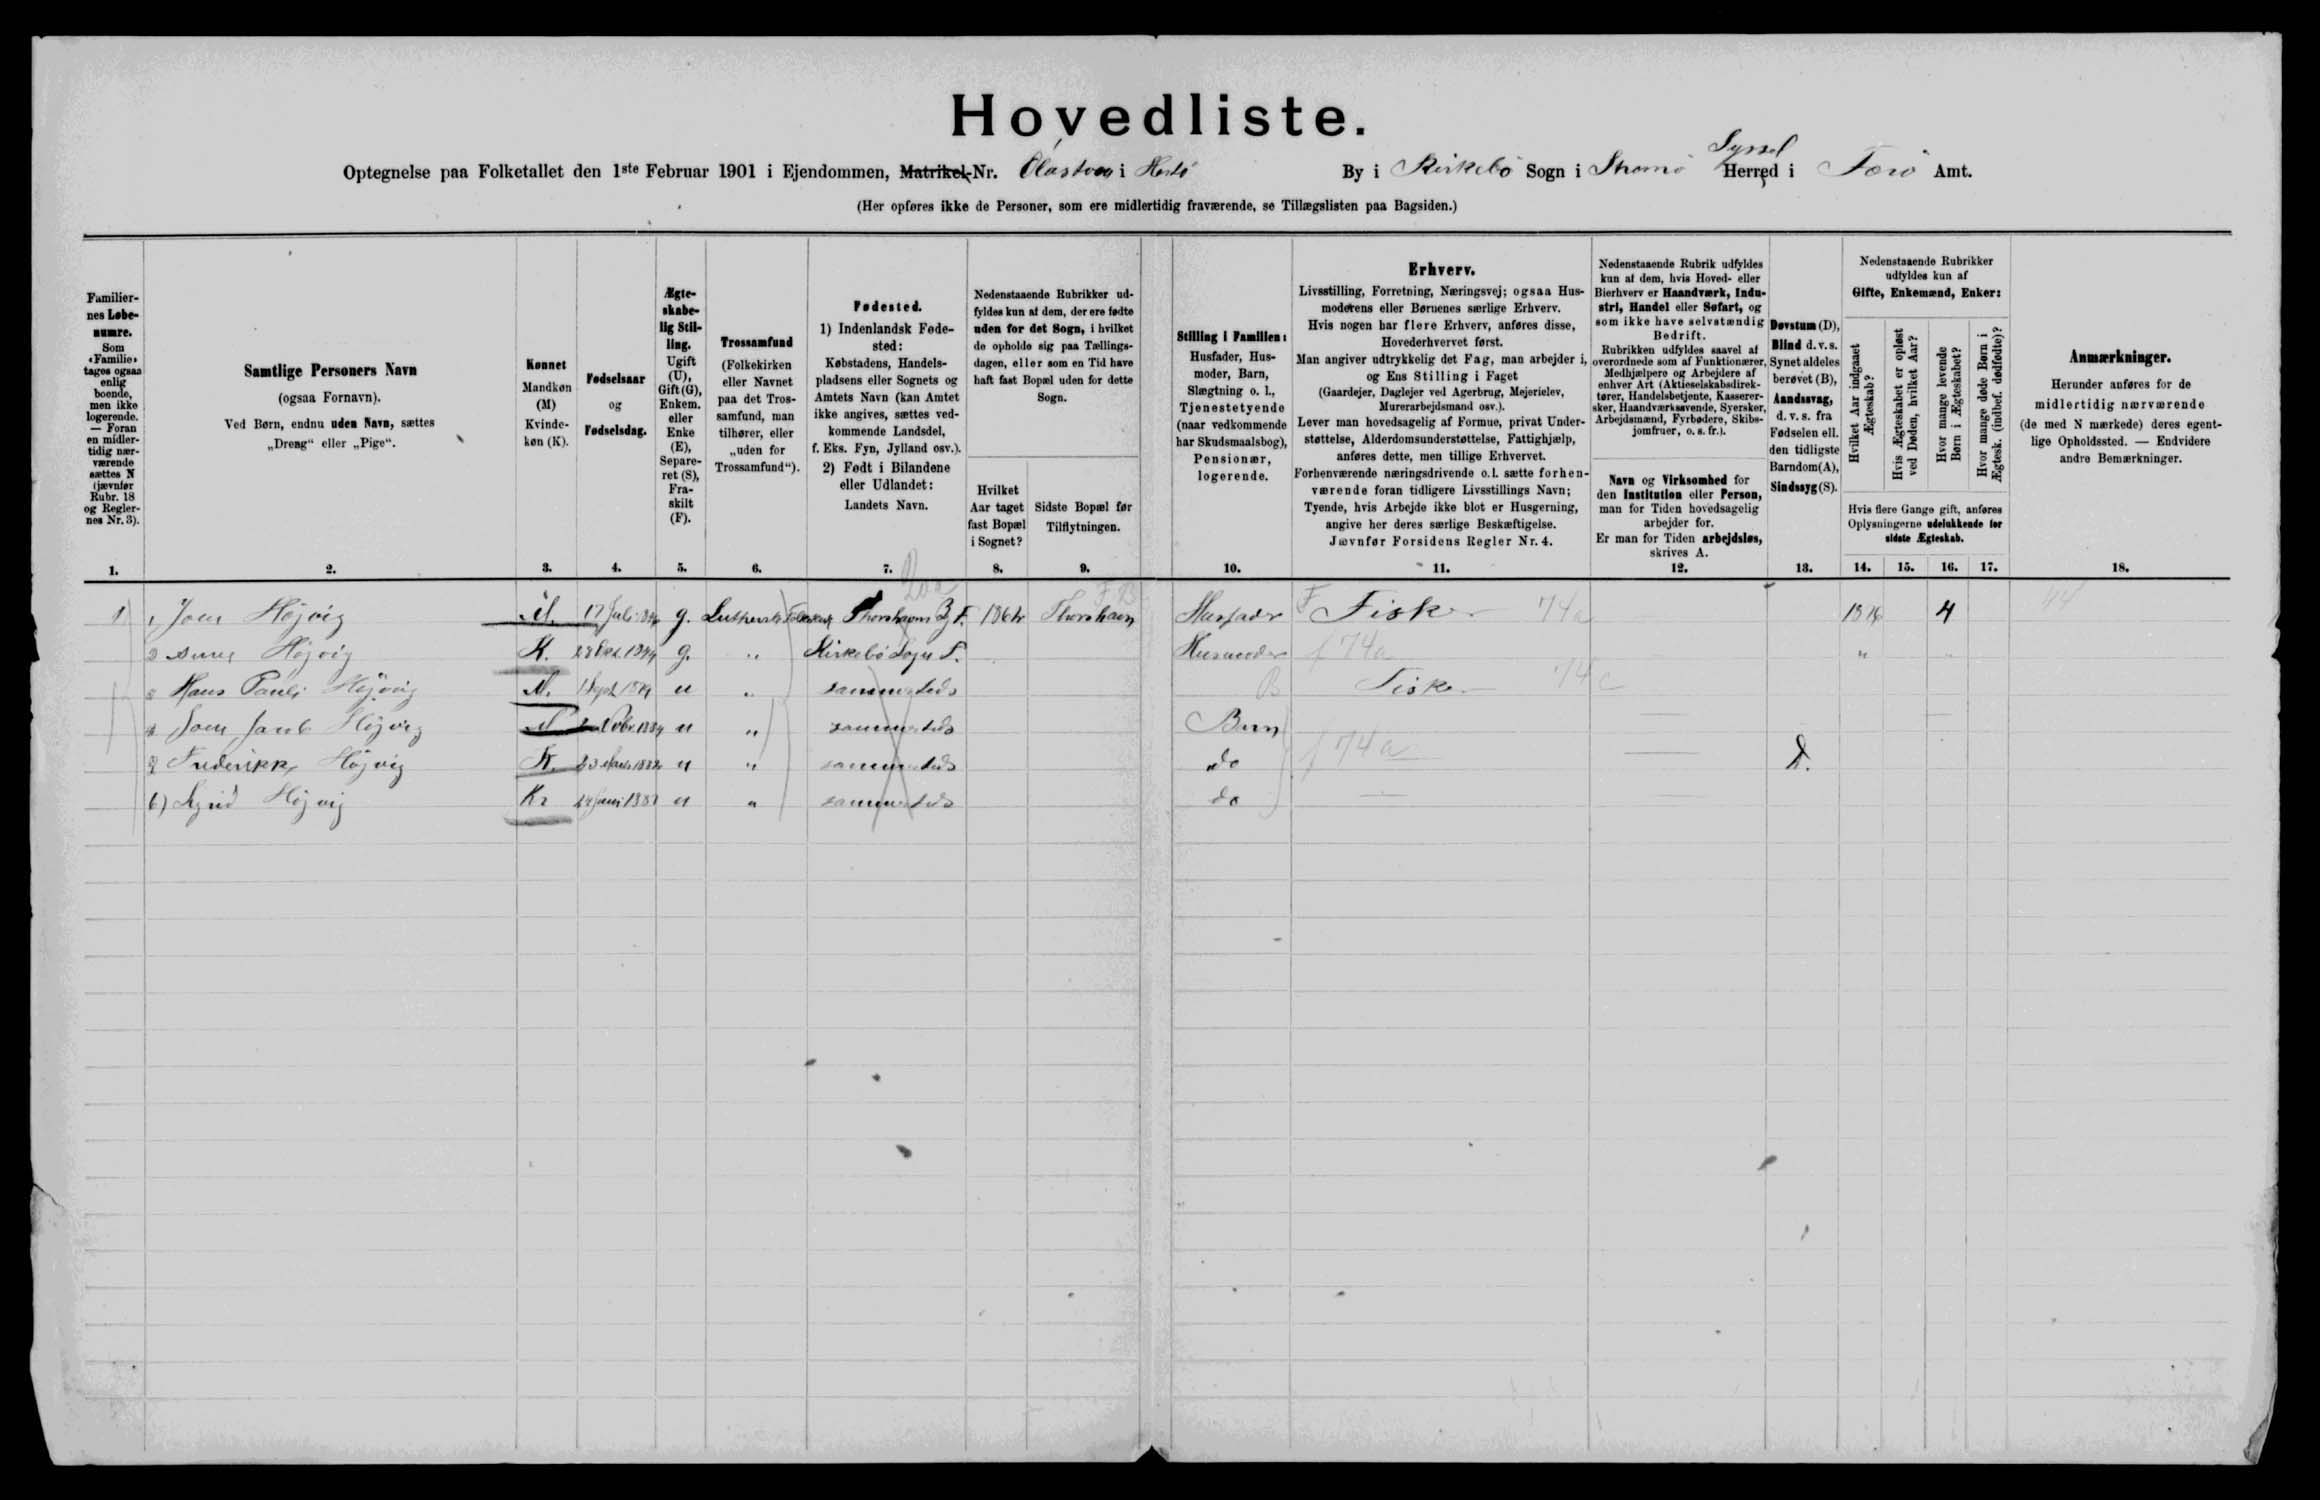 Hovedliste.
Syssel
Optegnelse paa Folketallet den 1ste Februar 1901 i Ejendommen, Matrikel-Nr. i Hestö By i Kirkebö Sogn i Strömö Herred i Færö Amt.
(Her opføres ikke de Personer, som ere midlertidig fraværende, se Tillægslisten paa Bagsiden.)
Familier-
nes Løbe-
numre.
Som
«Familie»
tages ogsaa
enlig
boende,
men ikke
logerende.
— Foran
en midler-
tidig nær-
værende
sættes N
(jævnfør
Rubr. 18
og Regler-
nes Nr. 3).
1.
Samtlige Personers Navn
(ogsaa Fornavn).
Ved Børn, endnu uden Navn, sættes
„Dreng“ eller „Pige“.
2.
Kønnet
Mandkøn
(M)
Kvinde-
køn (K).
3.
Fødselsaar
og
Fødselsdag.
4.
Ægte-
skabe-
lig Stil-
ling.
Ugift
(U),
Gift (G),
Enkem.
eller
Enke
(E),
Separe-
ret (S),
Fra-
skilt
(F).
5.
Trossamfund
(Folkekirken
eller Navnet
paa det Tros-
samfund, man
tilhører, eller
„uden for
Trossamfund“).
6.
Fødested.
1) IndenlandskFøde-
sted:
Købstadens, Handels-
pladsens eller Sognets og
Amtets Navn (kan Amtet
ikke angives, sættes ved-
kommende Landsdel,
f. Eks. Fyn, Jylland osv.).
2) Født i Bilandene
eller Udlandet:
Landets Navn.
7.
Nedenstaaende Rubrikker ud-
fyldes kun af dem, der ere fødte
uden for det Sogn, i hvilket
de opholde sig paa Tællings-
dagen, eller som en Tid have
haft fast Bopæl uden for dette
Sogn.
Hvilket
Aar taget
fast Bopæl
i Sognet?
8.
Sidste Bopæl før
Tilflytningen.
9.
Stilling i Familien:
Husfader, Hus-
moder, Barn,
Slægtning o. l.,
Tjenestetyende
(naar vedkommende
har Skudsmaalsbog),
Pensionær,
logerende.
10.
Erhverv.
Livsstilling, Forretning, Næringsvej; ogsaa Hus-
moderens eller Børnenes særlige Erhverv.
Hvis nogen har flere Erhverv, anføres disse,
Hovederhvervet først.
Man angiver udtrykkelig det Fag, man arbejder i,
og Ens Stilling i Faget
(Gaardejer, Daglejer ved Agerbrug, Mejerielev,
Murerarbejdsmand osv.).
Lever man hovedsagelig af Formue, privat Under-
støttelse, Alderdomsunderstøttelse, Fattighjælp,
anføres dette, men tillige Erhvervet.
Forhenværende næringsdrivende o. l. sætte forhen-
værende foran tidligere Livsstillings Navn;
Tyende, hvis Arbejde ikke blot er Husgerning,
angive her deres særlige Beskæftigelse.
Jævnfør Forsidens Regler Nr. 4.
11.
Nedenstaaende Rubrik udfyldes
kun af dem, hvis Hoved- eller
Bierhverv er Haandværk, Indu-
stri, Handel eller Søfart, og
som ikke have selvstændig
Bedrift.
Rubrikken udfyldes saavel af
overordnede som af Funktionærer,
Medhjælpere og Arbejdere af
enhver Art (Aktieselskabsdirek-
tører, Handelsbetjente, Kasserer-
sker, Haandværkssvende, Syersker,
Arbejdsmænd, Fyrbødere, Skibs-
jomfruer, o. s. fr.).
Navn og Virksomhed for
den Institution eller Person,
man for Tiden hovedsagelig
arbejder for.
Er man for Tiden arbejdsløs,
skrives A.
12.
Døvstum (D),
Blind d. v. s.
Synet aldeles
berøvet (B),
Aandssvag,
d. v. s. fra
Fødselen ell.
den tidligste
Barndom (A),
Sindssyg (S).
13.
Nedenstaaende Rubrikker
udfyldes kun af
Gifte, Enkemænd, Enker:
Hvilket Aar indgaaet
Ægteskab?
Hvis Ægteskabet er opløst
ved Døden, hvilket Aar?
Hvor mange levende
Børn i Ægteskabet?
Hvor mange døde Børn i
Ægtesk. (indbef. dødfødte)?
Hvis flere Gange gift, anføres
Oplysningerne udelukkende for
sidste Ægteskab.
14. 15. 16. 17.
Anmærkninger.
Herunder anføres for de
midlertidig nærværende
(de med N mærkede) deres egent-
lige Opholdssted. — Endvidere
andre Bemærkninger.
18.
1 1 Joen Højvig M. 17 Juli g. Luthersk Folkekirk Thorshavn F. Thorshavn Husfader Fisker 74a 4 44
2 Højvig K. 1844 g. " Kirkebö Sogn F. Husmoder f 74a "
3 Hans Pauli Højvig M. 1 Sept u " sammesteds B Fisker 74c
4 Joen Jacob Højvig M 1884 u " sammesteds Barn
5 Frederikke Højvig K. u " sammesteds do f 74a D.
6) Højvig K. u " sammesteds do